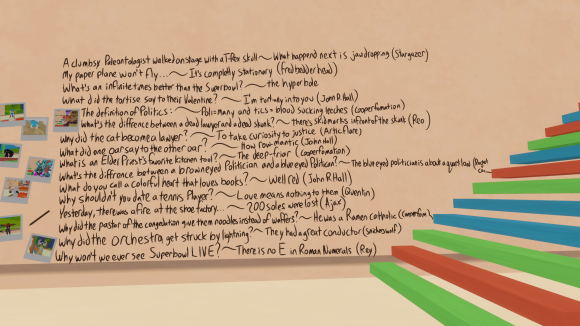 A clumbsy Paleontologist walked on stage with a T-Rex skull~ What happend next is jaw dropping (Stargazer)
My paper plane won't fly...~ It's completly stationary (fredbedderhead)
What's an infinite times better than the Superbowl? ~ the hyperbole
What did the tortise say to their Valentine? ~ I'm turtley into you (John R. Hall)
The definition of Politics: ~ Poli=many and tics= blood sucking leeches (Cooperfomation)
What's the difference between a dead lawyer and a dead skunk? ~ there's skidmarks infront of the skunk (Reo)
Why did the cat become a lawyer? ~ To take curiosity to justice (Articflare)
What did one oar say to the other oar? ~ How row-mantic (John Hall)
What is an Elder Priest's favorite kitchen tool? ~ The deep-friar (Cooperfomation)
What's the difference between a browneyed Politician and a blue eyed Politican? ~ The blue eyed politician is about a quart low
What do you call a colorful heart that loves books? ~ Well red (John R Hall)
Why shouldn't you date a tennis Player? ~ Love means nothing to them (Quentin)
Yesterday, there was a fire at the shoe factory... ~ 200 soles were lost (Ajax)
Why did the pastor of the congregation give them noodles instead of wafers? ~ He was a Ramen catholic
Why did the orchestra get struck by lightning? ~ They had a great conductor
Why won't we ever see Superbowl LIVE? ~ There is no E in Roman Numerals (Rey)